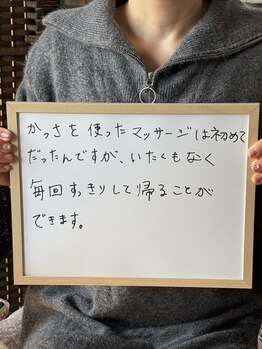 かっさを使ったマッサージは初めて
だったんですが、いたくもなく
毎回すっきりして帰ることが
できます。